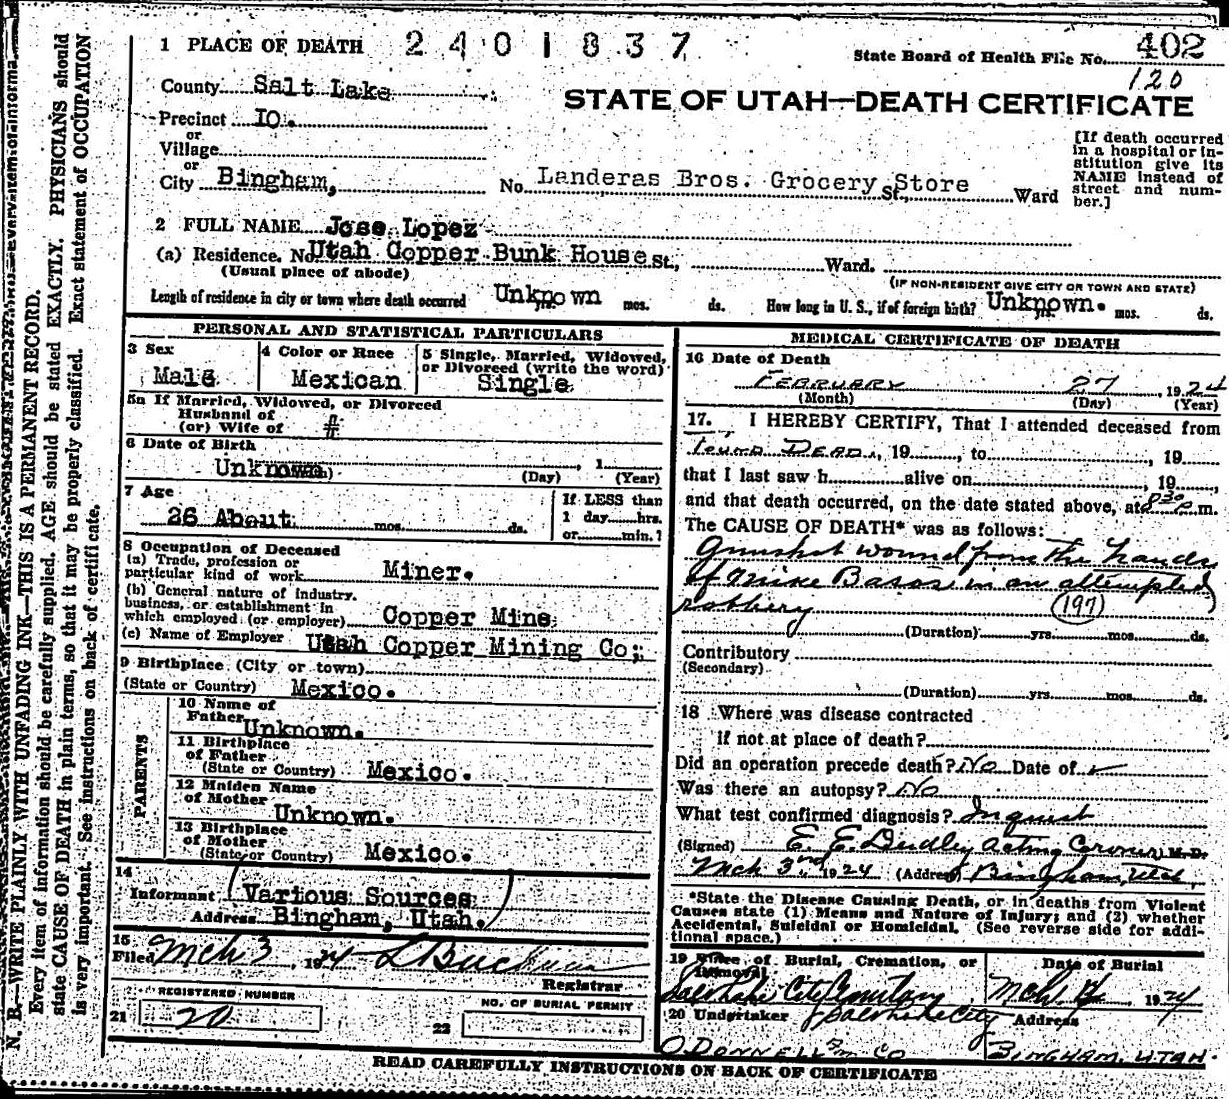 1 PLACE OF DEATH 2401837
State Board of Health File No. 402
120
County Salt Lake
STATE OF UTAH—DEATH CERTIFICATE
Precinct 10.
or
Village
or
City Bingham, No. Landeras Bros. Grocery Store St., Ward
[If death occurred
in a hospital or in-
stitution give its
NAME instead of
street and num-
ber.]
2 FULL NAME Jose Lopez
(a) Residence. No. Utah Copper Bunk House St., Ward.
(Usual place of abode) (IF NON-RESIDENT GIVE CITY OR TOWN AND STATE)
Length of residence in city or town where death occurred Unknown yrs. mos. ds. How long in U. S., if of foreign birth? Unknown. yrs. mos. ds.
PERSONAL AND STATISTICAL PARTICULARS
3 Sex
Male
4 Color or Race
Mexican
5 Single, Married, Widowed,
or Divorced (write the word)
Single
5a If Married, Widowed, or Divorced
Husband of
(or) Wife of #
6 Date of Birth
Unknown (Day) , 1 (Year)
7 Age
26 About mos. ds.
If LESS than
1 day hrs.
or min.?
8 Occupation of Deceased
(a) Trade, profession or
particular kind of work Miner.
(b) General nature of Industry.
business, or establishment in
which employed (or employer) Copper Mine
(c) Name of Employer Utah Copper Mining Co;
9 Birthplace (City or town)
(State or Country) Mexico.
PARENTS
10 Name of
Father Unknown.
11 Birthplace
of Father
(State or Country) Mexico.
12 Maiden Name
of Mother
Unknown.
13 Birthplace
of Mother
(State or Country) Mexico.
14
Informant (Various Sources)
Address Bingham, Utah.
15
Filed Mch 3, 1924
Registrar
REGISTERED NUMBER
21 20
NO. OF BURIAL PERMIT
22
MEDICAL CERTIFICATE OF DEATH
16 Date of Death
FEBRUARY 27, 1924
(Month) (Day) (Year)
17. I HEREBY CERTIFY, That I attended deceased from
Found Dead, 19, to, 19
that I last saw h alive on, 19,
and that death occurred, on the date stated above, at 8 30 P. m.
The CAUSE OF DEATH* was as follows:
Gunshot wound from the hands
of Mike Basos in an attempted
robbery (197)
(Duration) yrs. mos. ds.
Contributory
(Secondary)
(Duration) yrs. mos. ds.
18 Where was disease contracted
if not at place of death?
Did an operation precede death? No Date of
Was there an autopsy? No
What test confirmed diagnosis? Inquest
(Signed) E. E. Dudley Acting Coroner M.D.
Mch 3rd, 1924 (Address) Bingham, Utah.
*State the Disease Causing Death, or in deaths from Violent
Causes state (1) Means and Nature of Injury; and (2) whether
Accidental, Suicidal or Homicidal. (See reverse side for addi-
tional space.)
19 Place of Burial, Cremation, or
Removal
Salt Lake City Cemetery
Salt Lake City
Date of Burial
Mch 1924
20 Undertaker
O'DONNELL & CO
Address
BINGHAM, UTAH.
READ CAREFULLY INSTRUCTIONS ON BACK OF CERTIFICATE
N. B.—WRITE PLAINLY WITH UNFADING INK—THIS IS A PERMANENT RECORD.
Every item of information should be carefully supplied. AGE should be stated EXACTLY. PHYSICIANS should
state CAUSE OF DEATH in plain terms, so that it may be properly classified. Exact statement of OCCUPATION
is very important. See instructions on back of certificate.